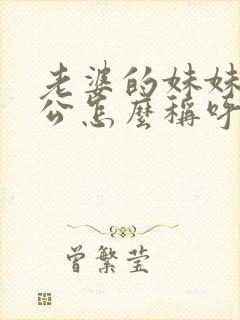 老婆的妹妹
公怎麼稱呼
曾繁莹